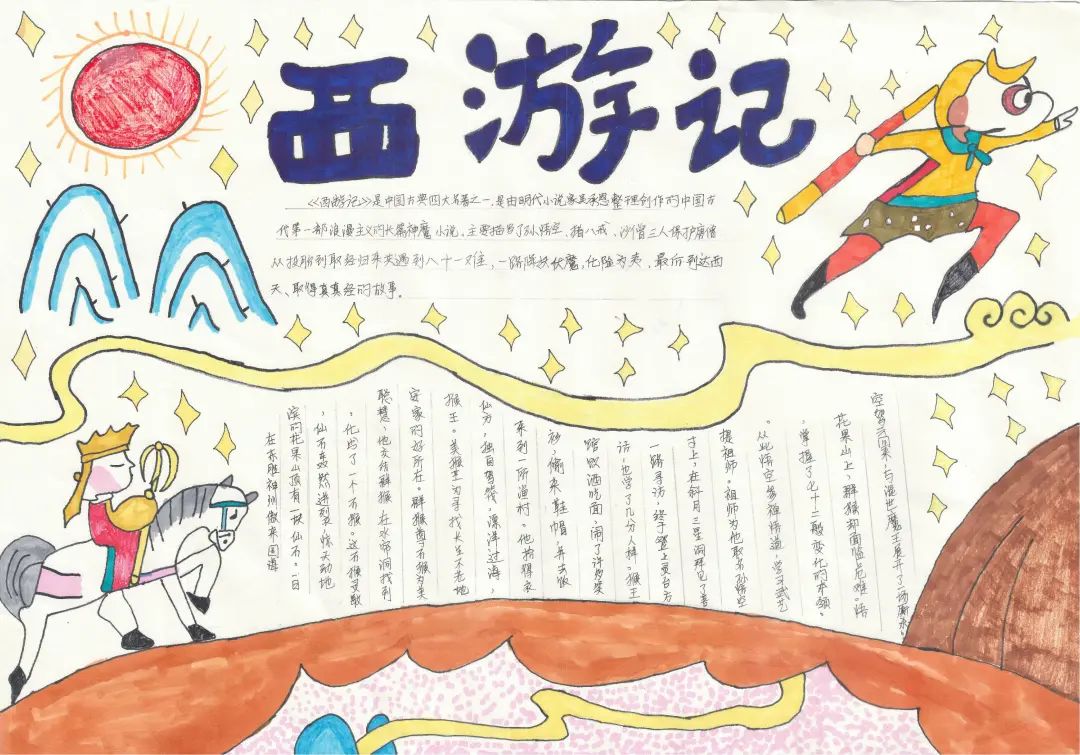 西游记
《西游记》是中国古典四大名著之一，是由明代小说家吴承恩整理创作的中国古
代第一部浪漫主义的长篇神魔小说，主要描写了孙悟空、猪八戒、沙僧三人保护唐僧
从投胎到取经归来共遇到八十一难，一路降妖伏魔，化险为夷、最后到达西
天、取得真真经的故事。
在东胜神州傲来国海
滨的花果山顶有一块仙石。一日
，仙石轰然迸裂，惊天动地
，化出了一个石猴。这石猴又敢
聪慧，他交结群猴，在水帘洞找到
安家的好所在。群猴尊石猴为美
猴王。美猴王为寻找长生不老地
仙方，独自驾筏，漂洋过海，
来到一所渔村。他拾得衣
衫，偷来鞋帽，并去饭
馆饮酒吃面，闹了许多笑
话，也学了几分人样。猴王
一路寻访，终于登上灵台方
寸上，在斜月三星洞拜见了菩
提祖师。祖师为他取名孙悟空
。从此悟空参禅悟道，学习武艺
，掌握了七十二般变化的本领。
花果山上，群猴却面临危难。悟
空驾云回来，与混世魔王展开了一场厮杀。